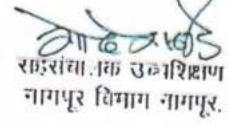 सहसंचालक उच्च शिक्षण
नागपूर विभाग नागपूर.